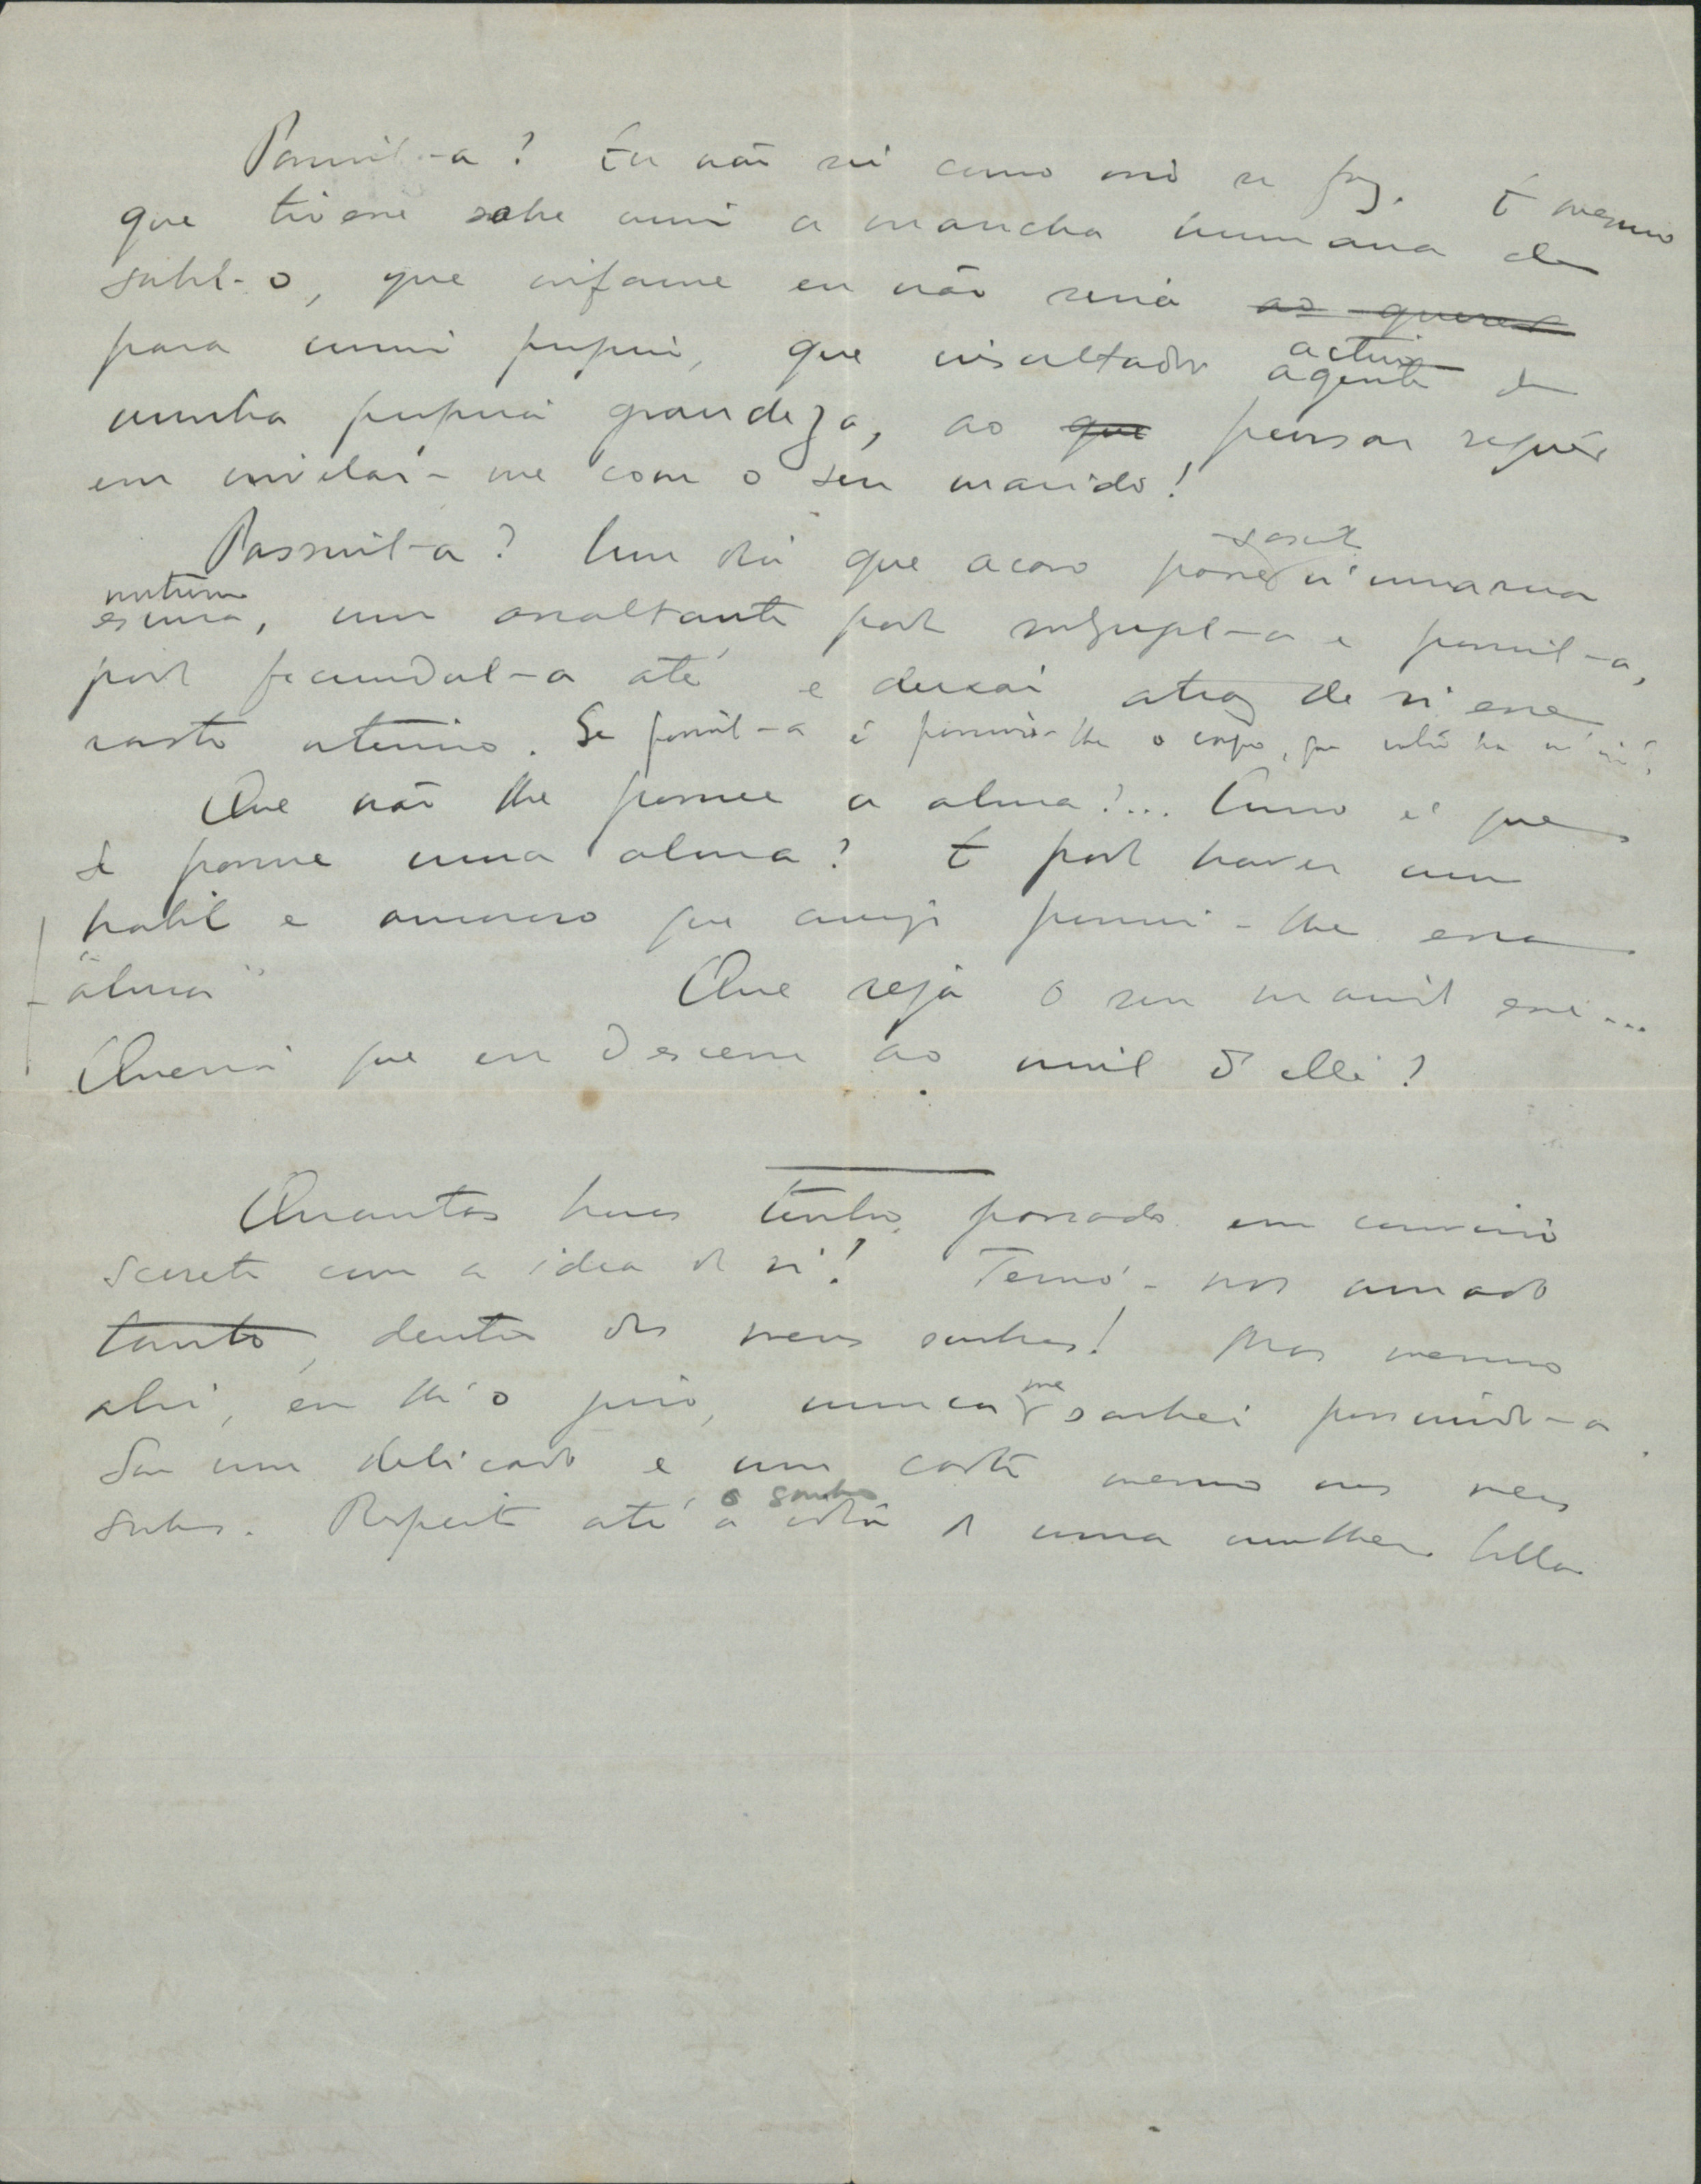 Possuil-a? Eu não sei como isso se faz. E mesmo
que tivesse sobre mim a mancha humana de
sabel-o, que infame eu não seria ao querer
para mim proprio, que insultador activo agente de
minha propria grandeza, ao que pensar sequér
em nivelar-me com o seu marido!
Possuil-a? Um dia que acaso passe sosinha n'uma rua
nocturna
escura, um assaltante pode subjugal-a e possuil-a,
pode fecundal-a até e deixar atraz de si esse
rasto uterino. Se possuil-a é possuir-lhe o corpo, que valor ha n'isso?
Que não lhe possue a alma?... Como é que
se possue uma alma? E pode haver um
habil e amoroso que consiga possuir-lhe essa
"alma" Que seja o seu marido esse...
Queria que eu descesse ao nivel d'elle?
Quantas horas tenho passado em convivio
secreto com a idéa de si! Temo'-nos amado
tanto, dentro dos meus sonhos! Mas mesmo
ahi, eu lh'o juro, nunca me sonhei possuindo-a.
Sou um delicado e um casto mesmo nos meus
sonhos. Respeito até a o sonho idéa de uma mulher bella